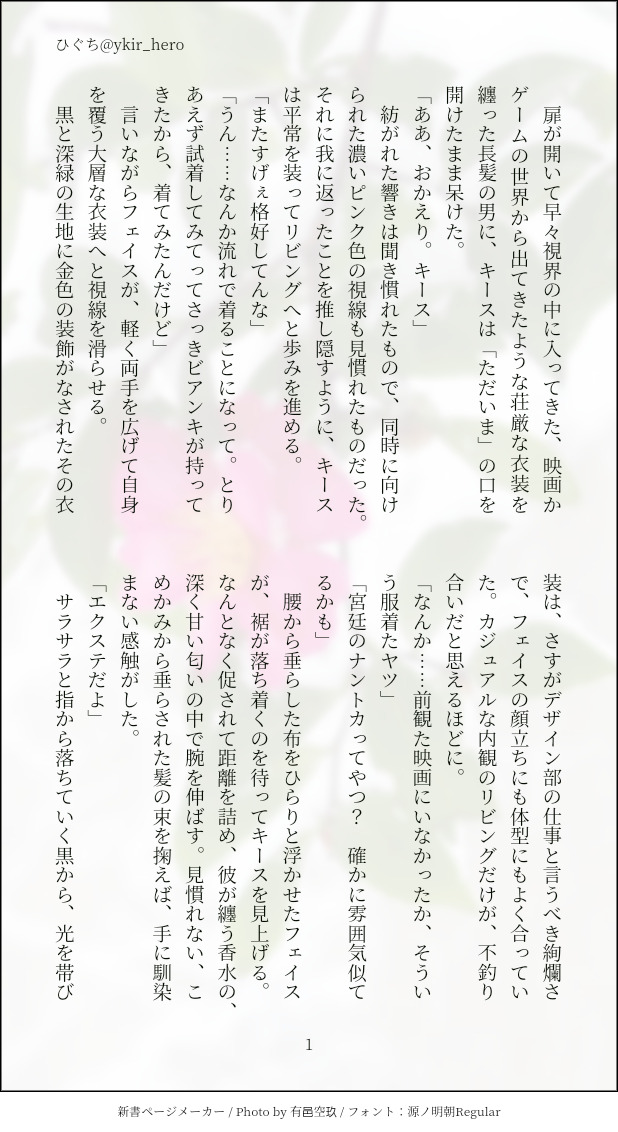 ひぐち@ykir_hero
　扉が開いて早々視界の中に入ってきた、映画か
ゲームの世界から出てきたような荘厳な衣装を
纏った長髪の男に、キースは「ただいま」の口を
開けたまま呆けた。
「ああ、おかえり。キース」
　紡がれた響きは聞き慣れたもので、同時に向け
られた濃いピンク色の視線も見慣れたものだった。
それに我に返ったことを推し隠すように、キース
は平常を装ってリビングへと歩みを進める。
「またすげぇ格好してんな」
「うん……なんか流れで着ることになって。とり
あえず試着してみてってさっきビアンキが持って
きたから、着てみたんだけど」
　言いながらフェイスが、軽く両手を広げて自身
を覆う大層な衣装へと視線を滑らせる。
　黒と深緑の生地に金色の装飾がなされたその衣
装は、さすがデザイン部の仕事と言うべき絢爛さ
で、フェイスの顔立ちにも体型にもよく合ってい
た。カジュアルな内観のリビングだけが、不釣り
合いだと思えるほどに。
「なんか……前観た映画にいなかったか、そうい
う服着たヤツ」
「宮廷のナントカってやつ？　確かに雰囲気似て
るかも」
　腰から垂らした布をひらりと浮かせたフェイス
が、裾が落ち着くのを待ってキースを見上げる。
なんとなく促されて距離を詰め、彼が纏う香水の、
深く甘い匂いの中で腕を伸ばす。見慣れない、こ
めかみから垂らされた髪の束を掬えば、手に馴染
まない感触がした。
「エクステだよ」
　サラサラと指から落ちていく黒から、光を帯び
1
新書ページメーカー / Photo by 有邑空玖 / フォント：源ノ明朝Regular